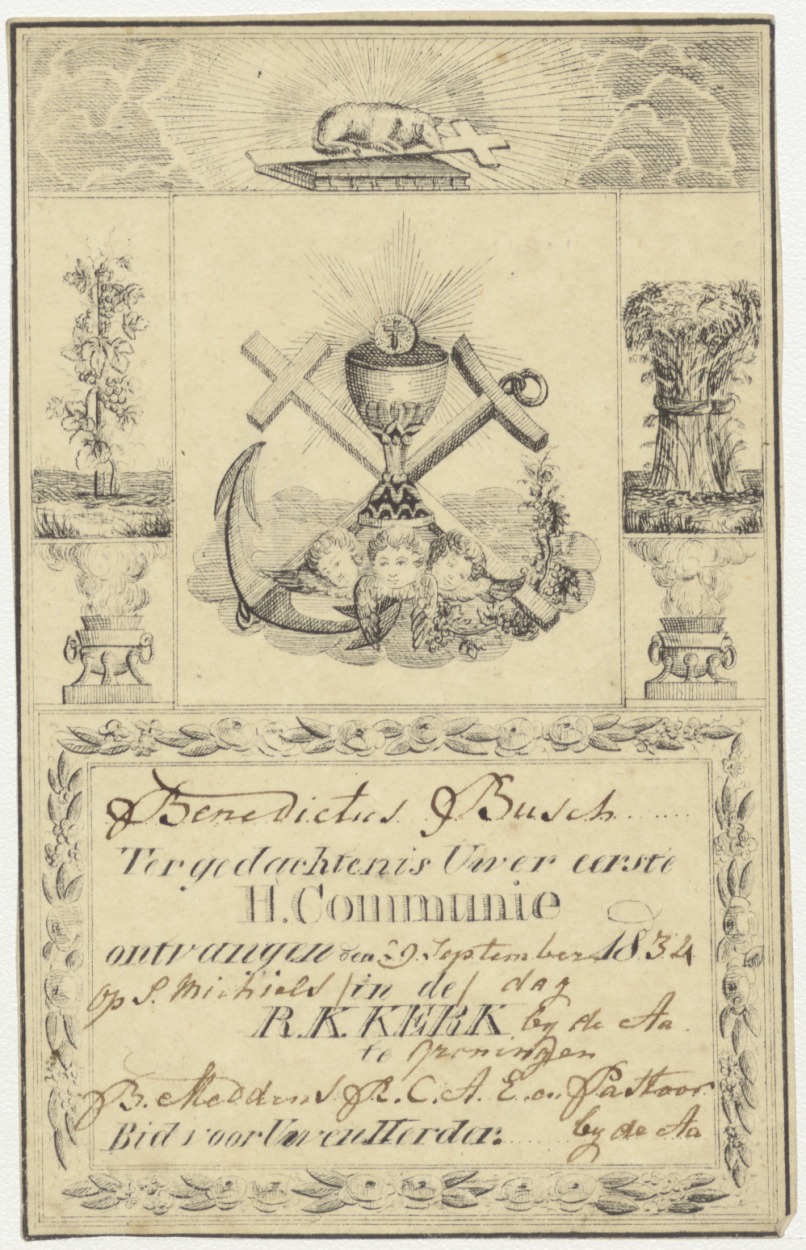 Benedictus Busch
Ter gedachtenis Uwer eerste
H. Communie
ontvangen den 29. September 1834
op S. Michiels / in de / dag
R.K. KERK by de Aa
te Groningen
B. Meddens R. C. A. E. en Pastoor
Bid voor Uwen Herder. by de Aa